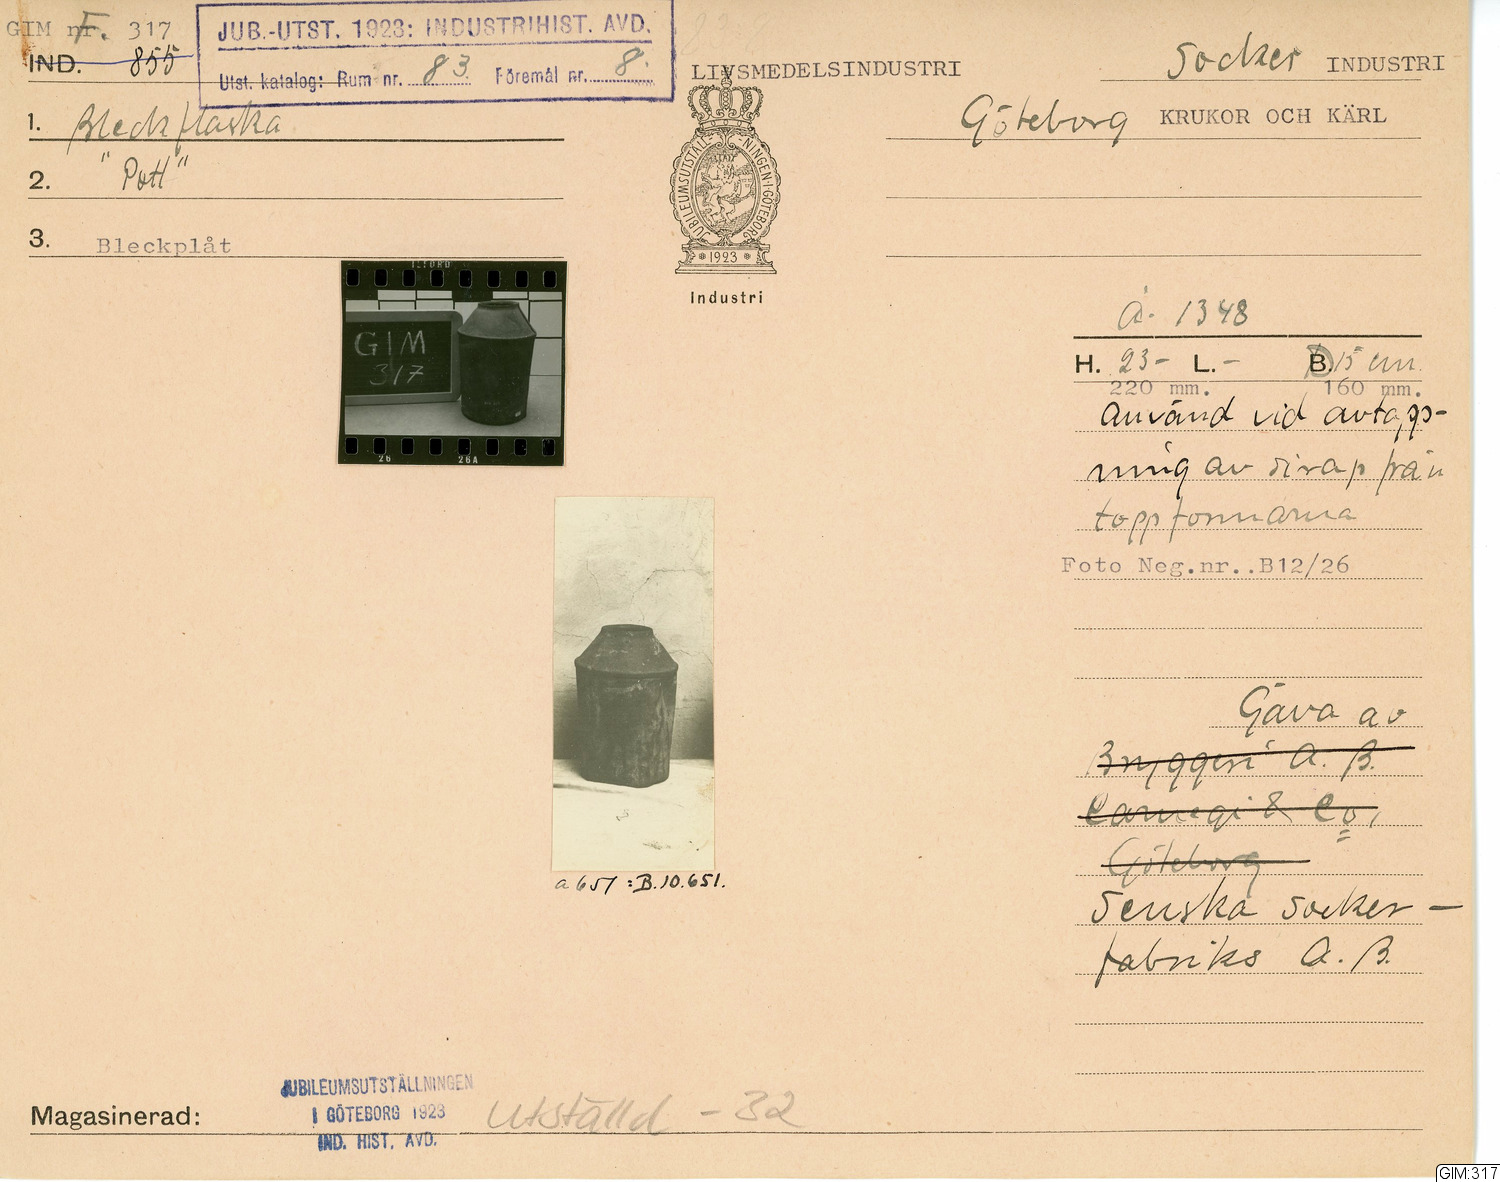 GIM nr. 317
IND. 855
JUB.-UTST. 1923: INDUSTRIHIST. AVD.
Utst. katalog: Rum nr. 83. Föremål nr. 8.
LIVSMEDELSINDUSTRI
Socker INDUSTRI
1. Bleckflaska
Göteborg KRUKOR OCH KÄRL
2. "Pott"
3. Bleckplåt
JUBILEUMSUTSTÄLLNINGEN I GÖTEBORG
1923
Industri
GIM
317
26 26A
A. 1348
H. 23- L. - B. D 15 cm.
220 mm. 160 mm.
Använd vid avtapp-
ning av sirap från
toppformarna
Foto Neg.nr..B12/26
Gåva av
Bryggeri A. B.
Carnegi & Co,
Göteborg
Svenska socker-
fabriks A. B.
a 651 : B.10.651.
JUBILEUMSUTSTÄLLNINGEN
I GÖTEBORG 1923
IND. HIST. AVD.
Magasinerad: Utställd - 32
GIM:317